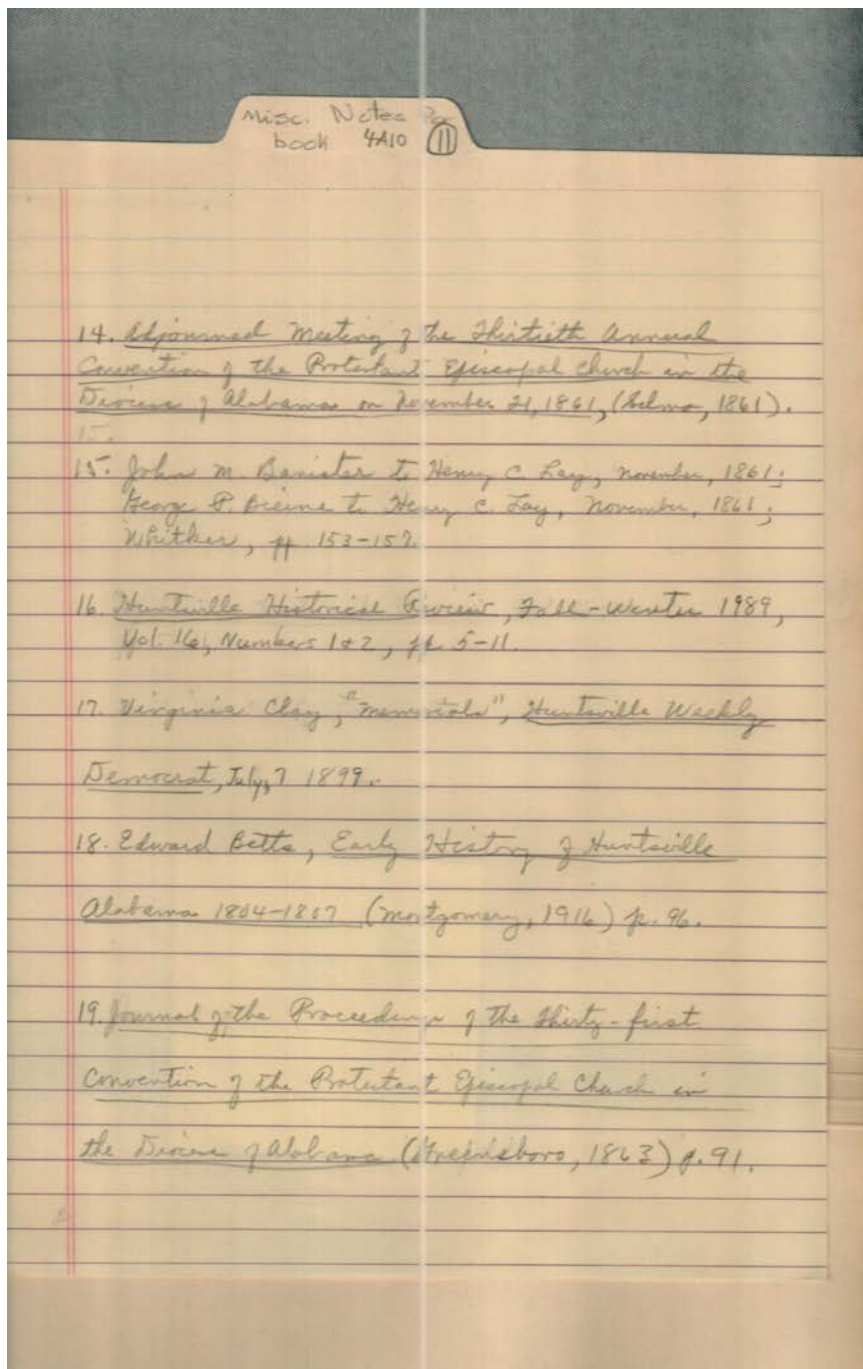 Misc. Notes
book 4A10 11
14. Adjourned Meeting of the Thirtieth Annual
Convention of the Protestant Episcopal Church in the
Diocese of Alabama on November 21, 1861, (Selma, 1861).
15.
15. John M. Banister to Henry C Lay, November, 1861;
George P. Beirne to Henry C. Lay, November, 1861;
Whitker, pp. 153-157.
16. Huntsville Historical Review, Fall-Winter 1989,
Vol. 16, Numbers 1&2, pp. 5-11.
17. Virginia Clay, "Memorials", Huntsville Weekly
Democrat, July, 7 1899.
18. Edward Betts, Early History of Huntsville
Alabama 1804-1807 (Montgomery, 1916) p. 96.
19. Journal of the Proceedings of the Thirty-first
Convention of the Protestant Episcopal Church in
the Diocese of Alabama (Greensboro, 1863) p. 91.